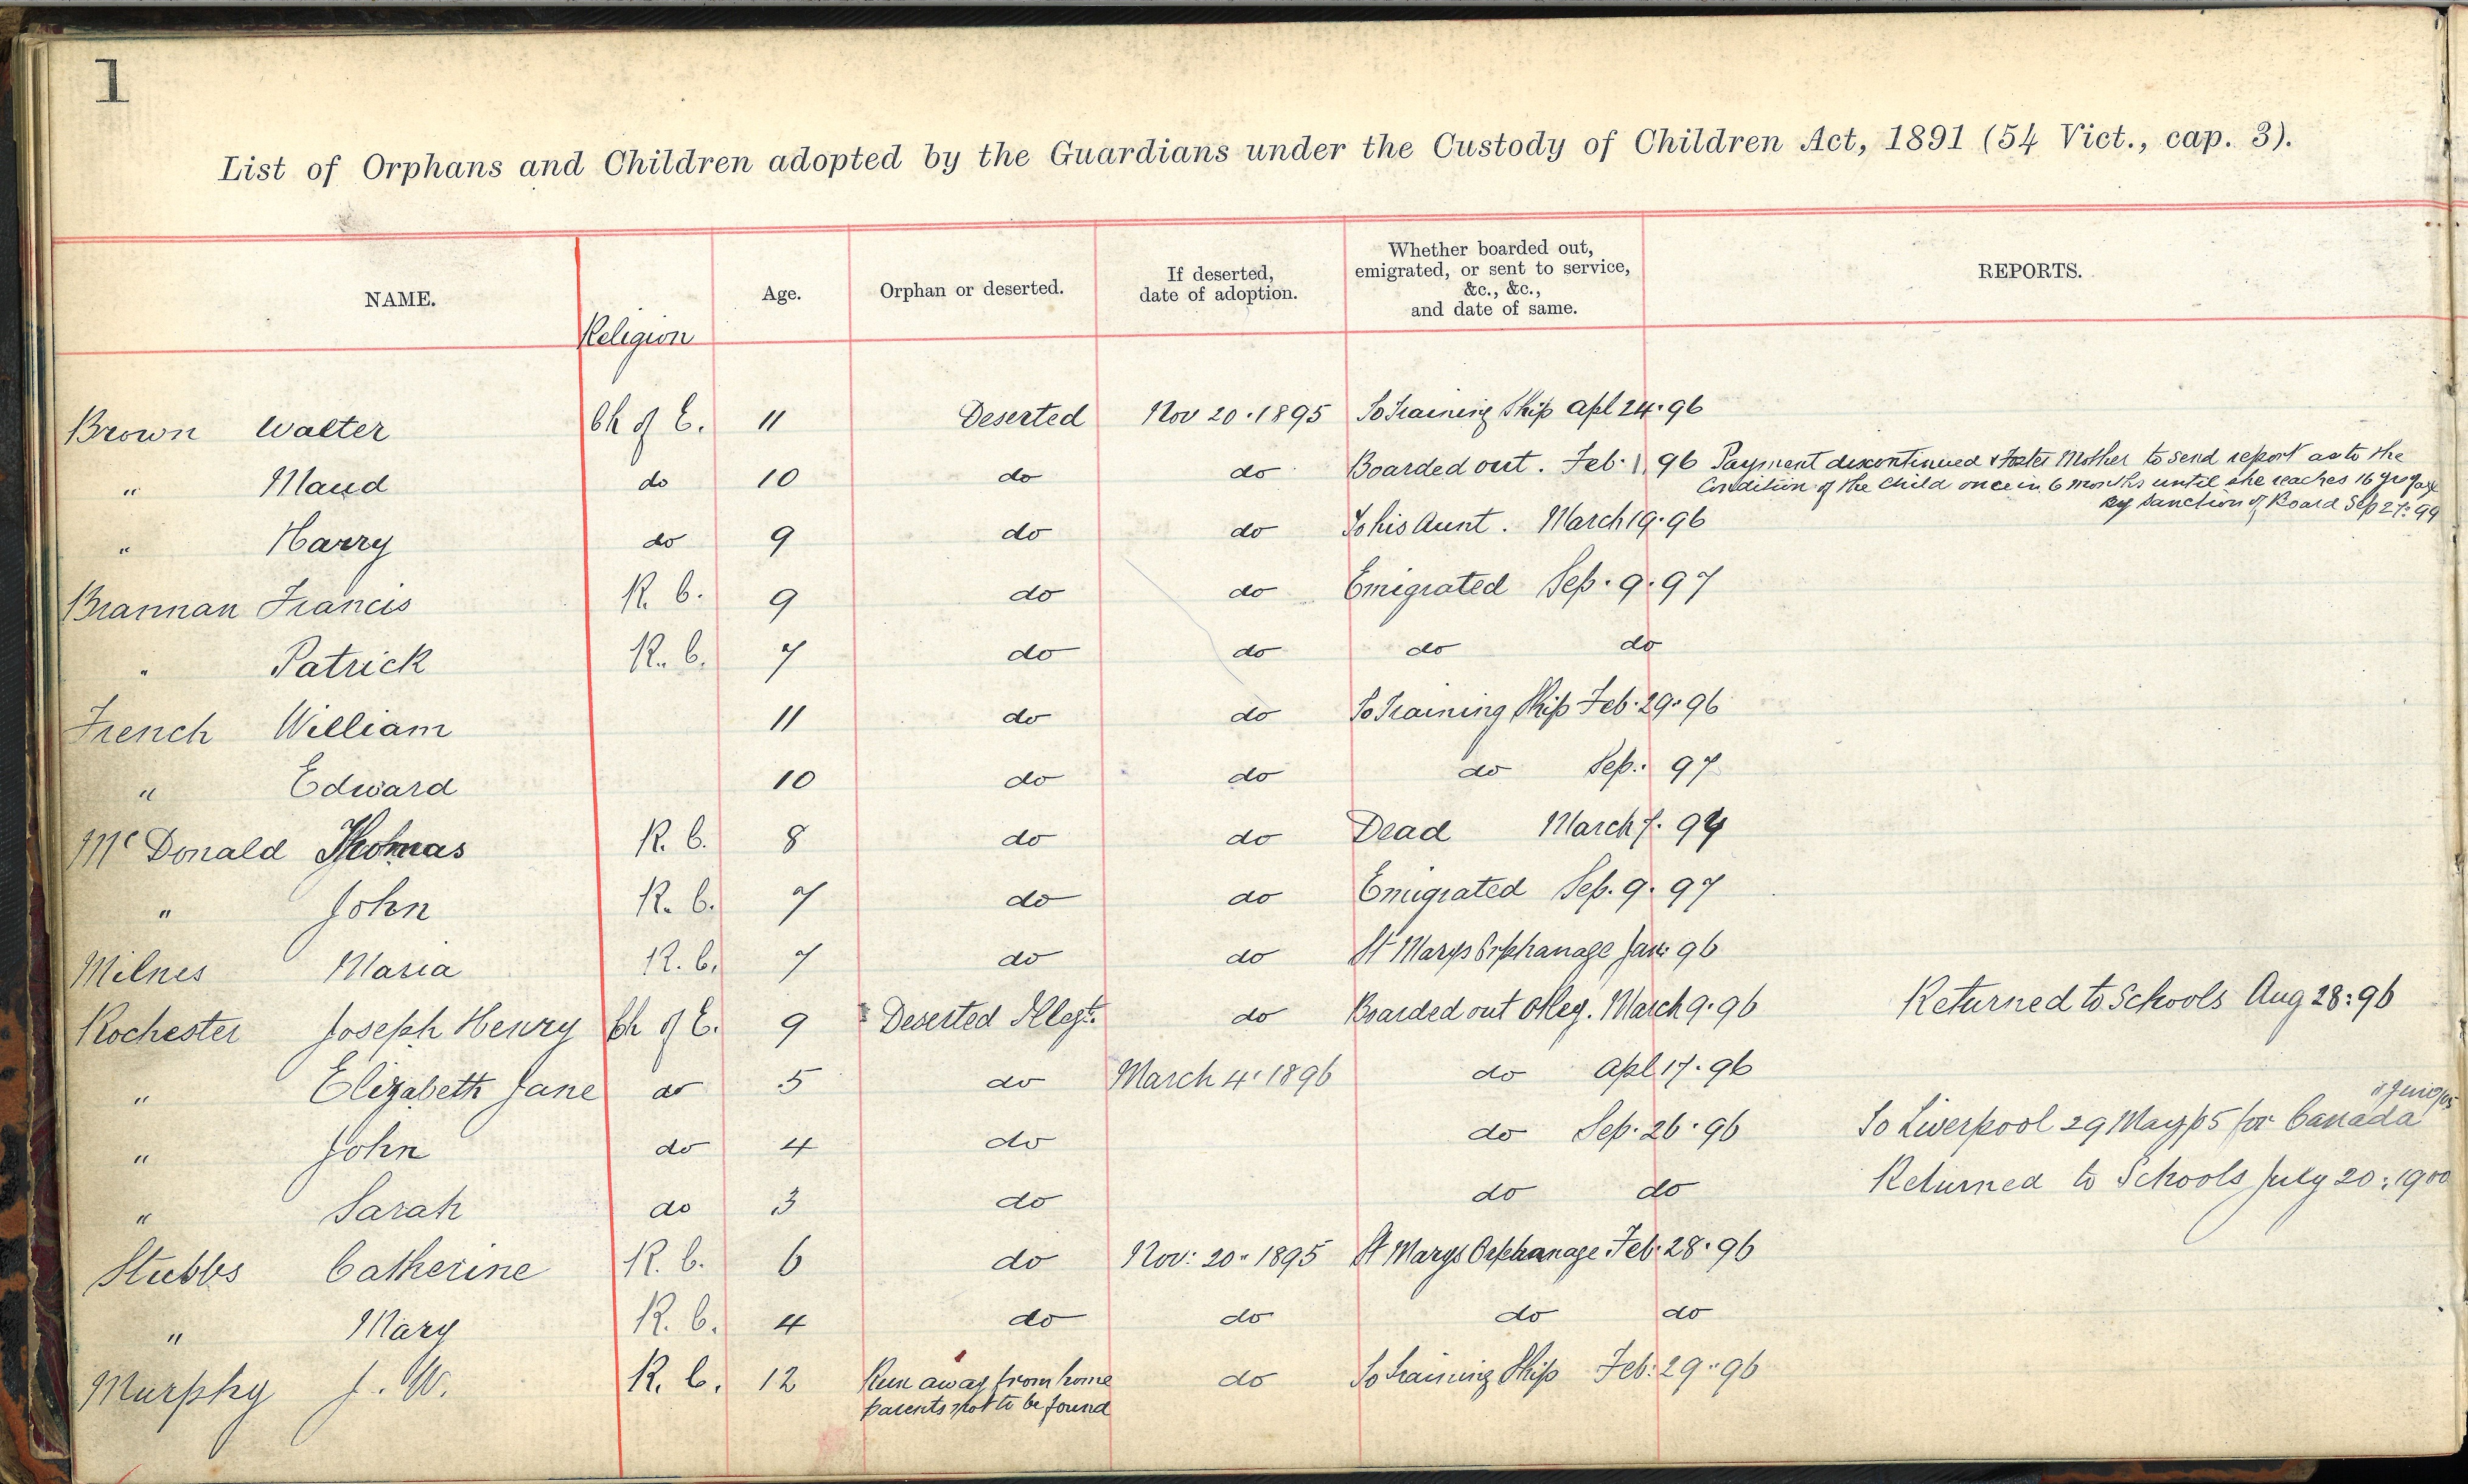 1
List of Orphans and Children adopted by the Guardians under the Custody of Children Act, 1891 (54 Vict., cap. 3).
NAME. Religion Age. Orphan or deserted. If deserted, date of adoption. Whether boarded out, emigrated, or sent to service, &c., &c., and date of same. REPORTS.
Brown Walter Ch of E. 11 Deserted Nov 20. 1895 To Training Ship Apl 24. 96
" Maud do 10 do do Boarded out. Feb. 1 96 Payment discontinued & Foster Mother to send report as to the
Condition of the Child once in 6 months until she reaches 16 yrs of age
by Sanction of Board Sep 27: 99
" Harry do 9 do do To his Aunt. March 19. 96
Brannan Francis R. C. 9 do do Emigrated Sep. 9. 97
" Patrick R. C. 7 do do do do
French William 11 do do To Training Ship Feb. 29. 96
" Edward 10 do do do Sep: 97
McDonald Thomas R. C. 8 do do Dead March 7.
" John R. C. 7 do do Emigrated Sep. 9. 97
Milnes Maria R. C. 7 do do St Marys Orphanage Jan: 96
Rochester Joseph Henry Ch of E. 9 Deserted Illegt. do Boarded out March 9. 96 Returned to Schools Aug 28: 96
" Elizabeth Jane do 5 do March 4. 1896 do Apl 17. 96
" John do 4 do do Sep. 26. 96 To Liverpool 29 May/05 for Canada
" Sarah do 3 do do do Returned to Schools July 20: 1900
Stubbs Catherine R. C. 6 do Nov: 20. 1895 St Marys Orphanage Feb. 28. 96
" Mary R. C. 4 do do do do
Murphy J. W. R. C. 12 Run away from home do To Training Ship Feb: 29. 96
parents not to be found